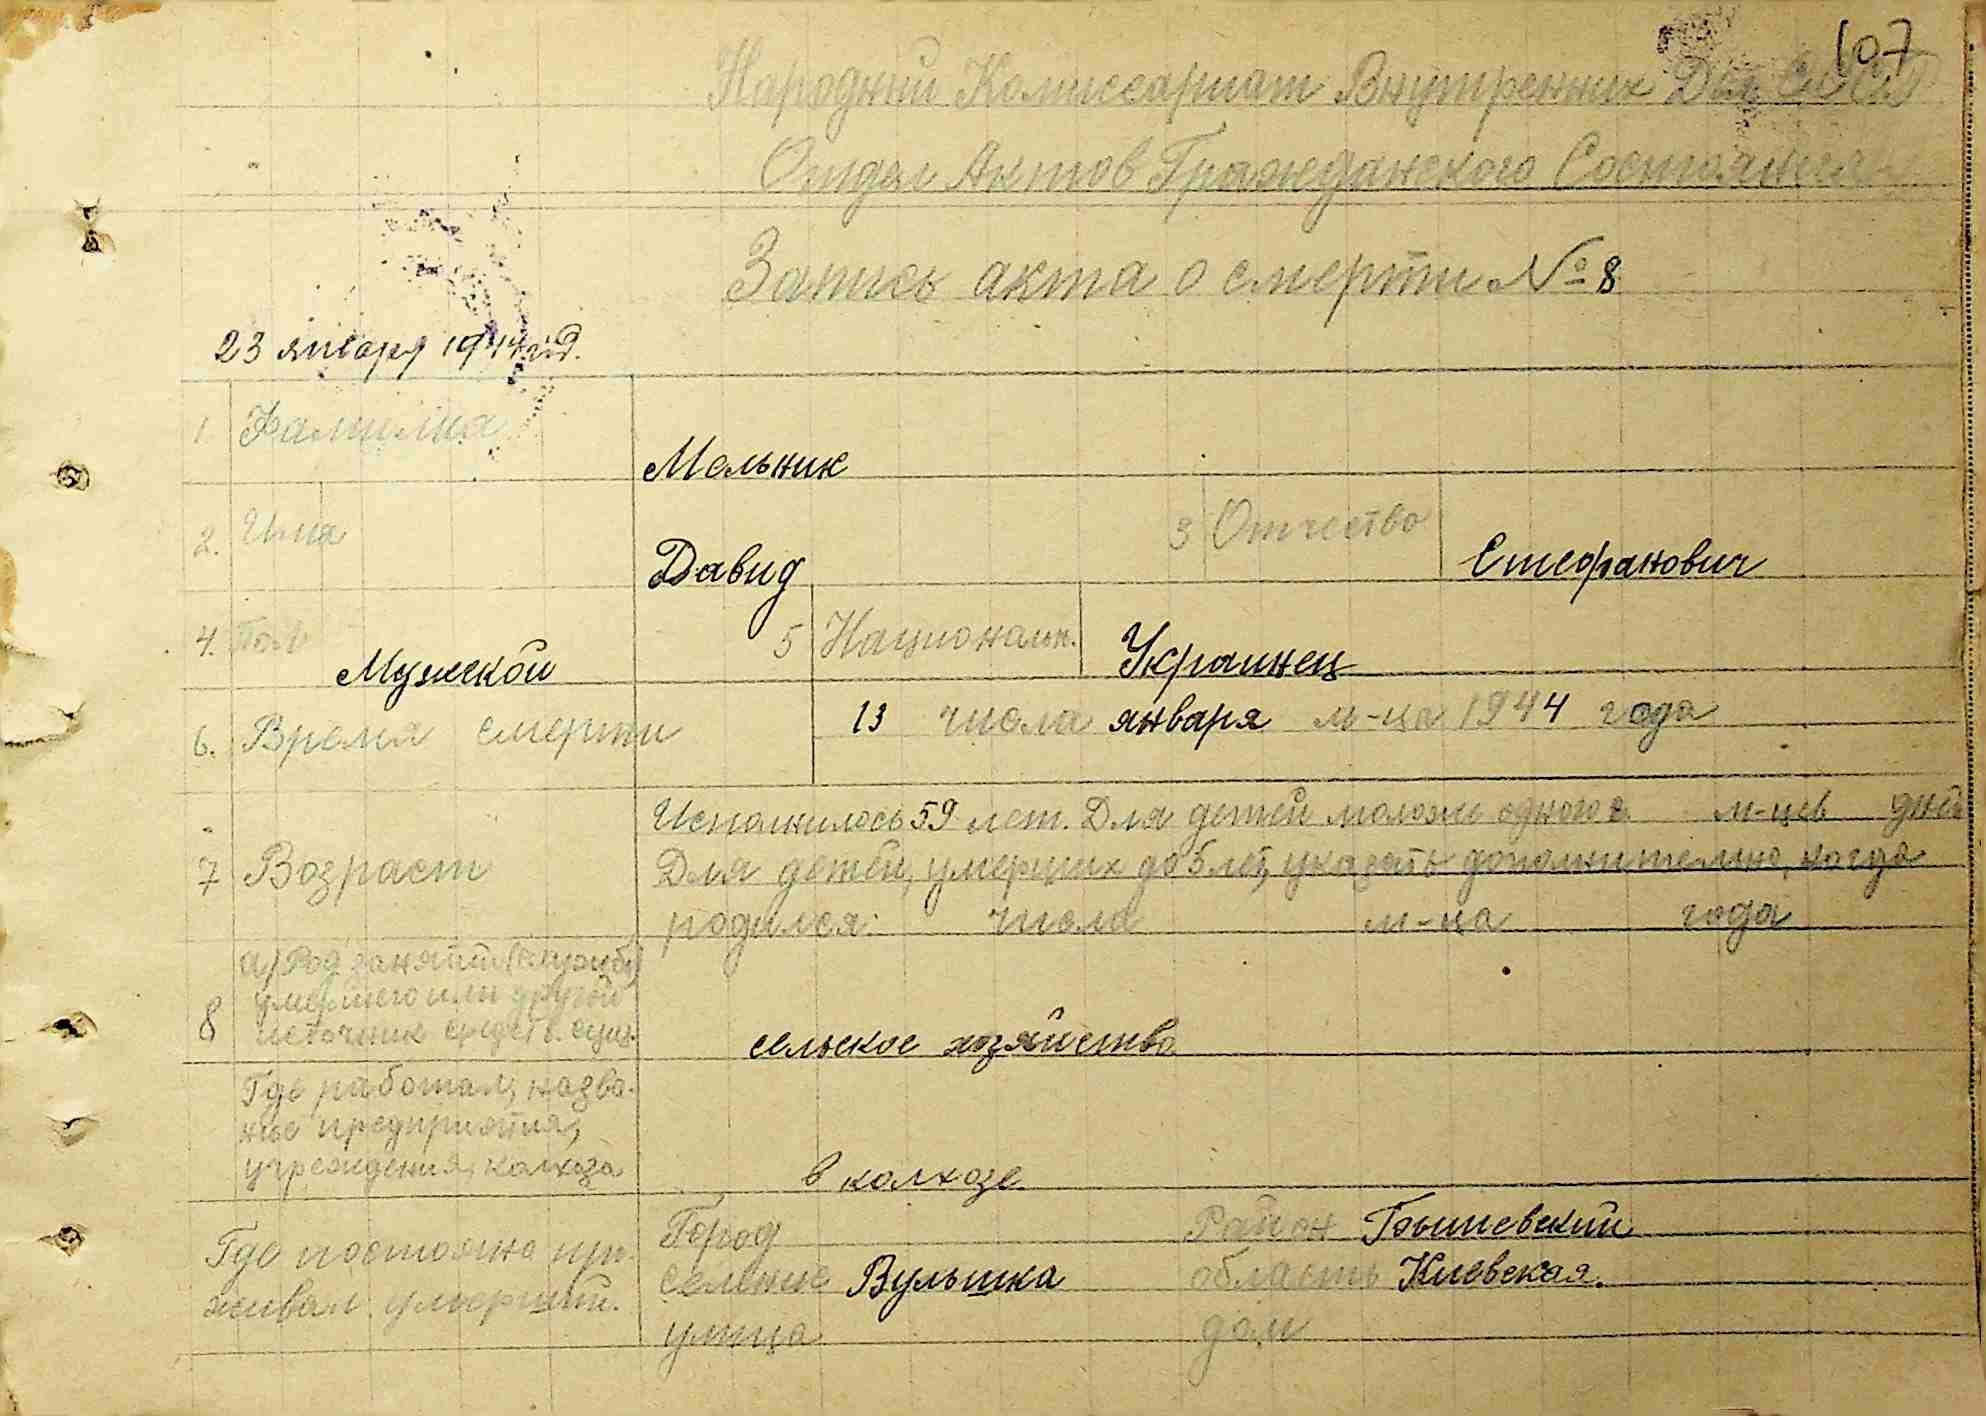 107
Народний Комиссариат Внутренних Дел СССР
Отдел Актов Гражданского Состояния
Запись акта о смерти № 8
23 января 1944 год.
1. Фамилия
Мельник
2. Имя
Давид
3 Отчество
Стефанович
4. Пол
Мужской
5 Национальн.
Украинец
6. Время смерти
13 числа января м-ца 1944 года
7 Возраст
Исполнилось 59 лет. Для детей моложе одного г. м-цев дней
Для детей, умерших до 5 лет, указать дополнительно, когда
родился: числа м-ца года
8
а) Род занятий (службы)
умершего или другой
источник средств. сущ.
сельское хозяйство
Где работал, назва-
ние предприятия,
учреждения, колхоза
в колхозе
Где постоянно про-
живал умерший.
Город
Район Бышевский
селение Вульшка
область Киевская.
улица
дом